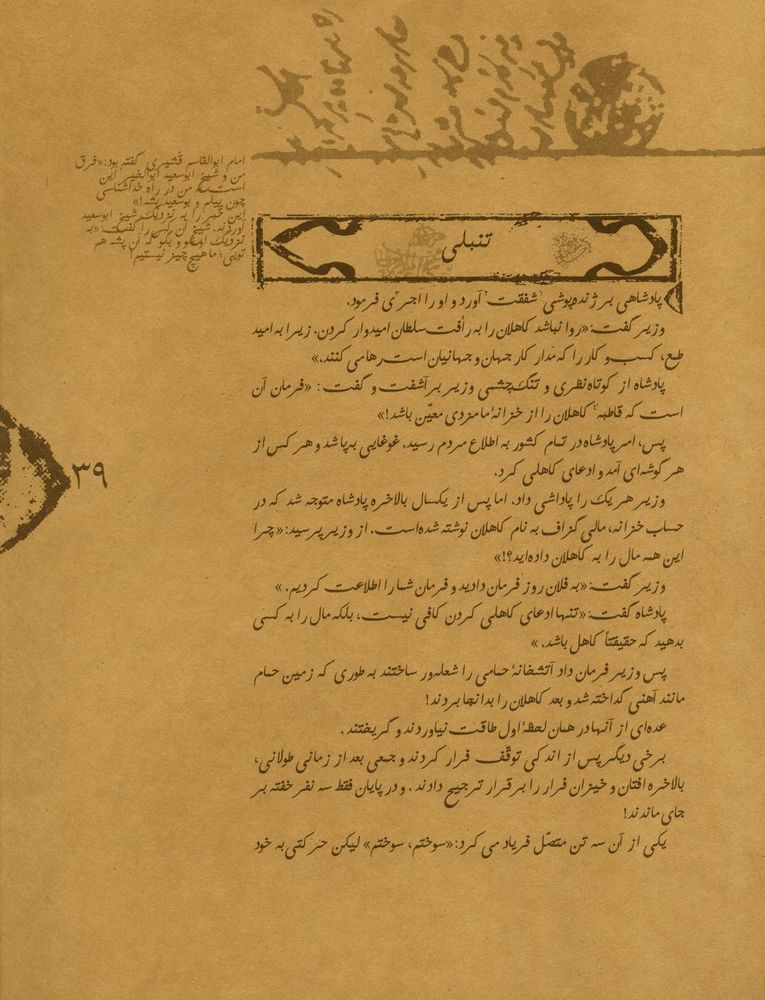 امام ابوالقاسم قُشیری گفته بود: «فرق
من و شیخ ابوسعید ابوالخیر این
است که من در راه خداشناسی
چون پیلم و بوسعید پشه!»
این خبر را به نزدیک شیخ ابوسعید
آوردند. شیخ آن کس را گفت: «به
نزدیک او شو و بگو که آن پشه هم
تویی؛ ما هیچ چیز نیستیم!»
تنبلی
پادشاهی بر ژنده‌پوشی شفقت آورد و او را اجری فرمود.
وزیر گفت: «روا نباشد کاهلان را به رأفت سلطان امیدوار کردن. زیرا به امید
طمع، کسب و کار را که مَدار کار جهان و جهانیان است رها می کنند.»
پادشاه از کوتاه نظری و تنگ چشمی وزیر برآشفت و گفت: «فرمان آن
است که قاطبهٔ کاهلان را از خزانهٔ ما مزدی معیّن باشد!»
پس، امر پادشاه در تمام کشور به اطلاع مردم رسید. غوغایی به پا شد و هر کس از
هر گوشه‌ای آمد و ادعای کاهلی کرد.
وزیر هر یک را پاداشی داد. اما پس از یکسال بالاخره پادشاه متوجه شد که در
حساب خزانه، مالی گزاف به نام کاهلان نوشته شده است. از وزیر پرسید: «چرا
این همه مال را به کاهلان داده‌اید؟!»
وزیر گفت: «به فلان روز فرمان دادید و فرمان شما را اطلاعت کردیم.»
پادشاه گفت: «تنها ادعای کاهلی کردن کافی نیست، بلکه مال را به کسی
بدهید که حقیقتاً کاهل باشد.»
پس وزیر فرمان داد آتشخانهٔ حمامی را شعله‌ور ساختند به طوری که زمین حمام
مانند آهنی گداخته شد و بعد کاهلان را بدانجا بردند!
عده‌ای از آنها در همان لحظهٔ اول طاقت نیاوردند و گریختند.
برخی دیگر پس از اندکی توقّف فرار کردند و جمعی بعد از زمانی طولانی،
بالاخره افتان و خیزان فرار را بر قرار ترجیح دادند. و در پایان فقط سه نفر خفته بر
جای ماندند!
یکی از آن سه تن متصّل فریاد می کرد: «سوختم، سوختم» لیکن حرکتی به خود
۳۹